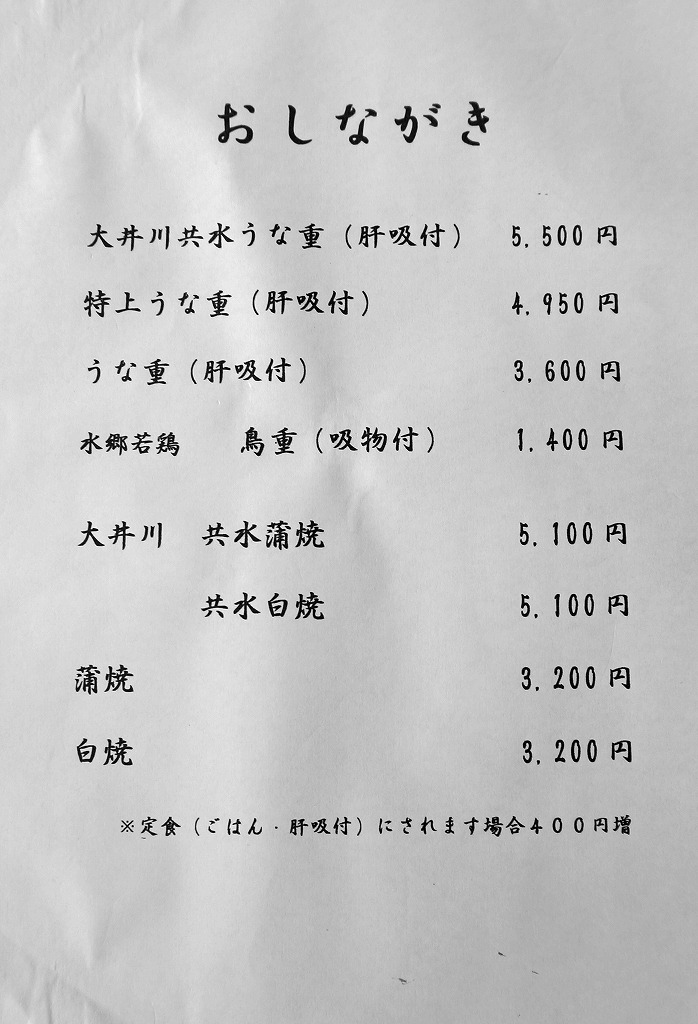 おしながき
大井川共水うな重（肝吸付） 5,500円
特上うな重（肝吸付） 4,950円
うな重（肝吸付） 3,600円
水郷若鶏 鳥重（吸物付） 1,400円
大井川 共水蒲焼 5,100円
共水白焼 5,100円
蒲焼 3,200円
白焼 3,200円
※定食（ごはん・肝吸付）にされます場合４００円増